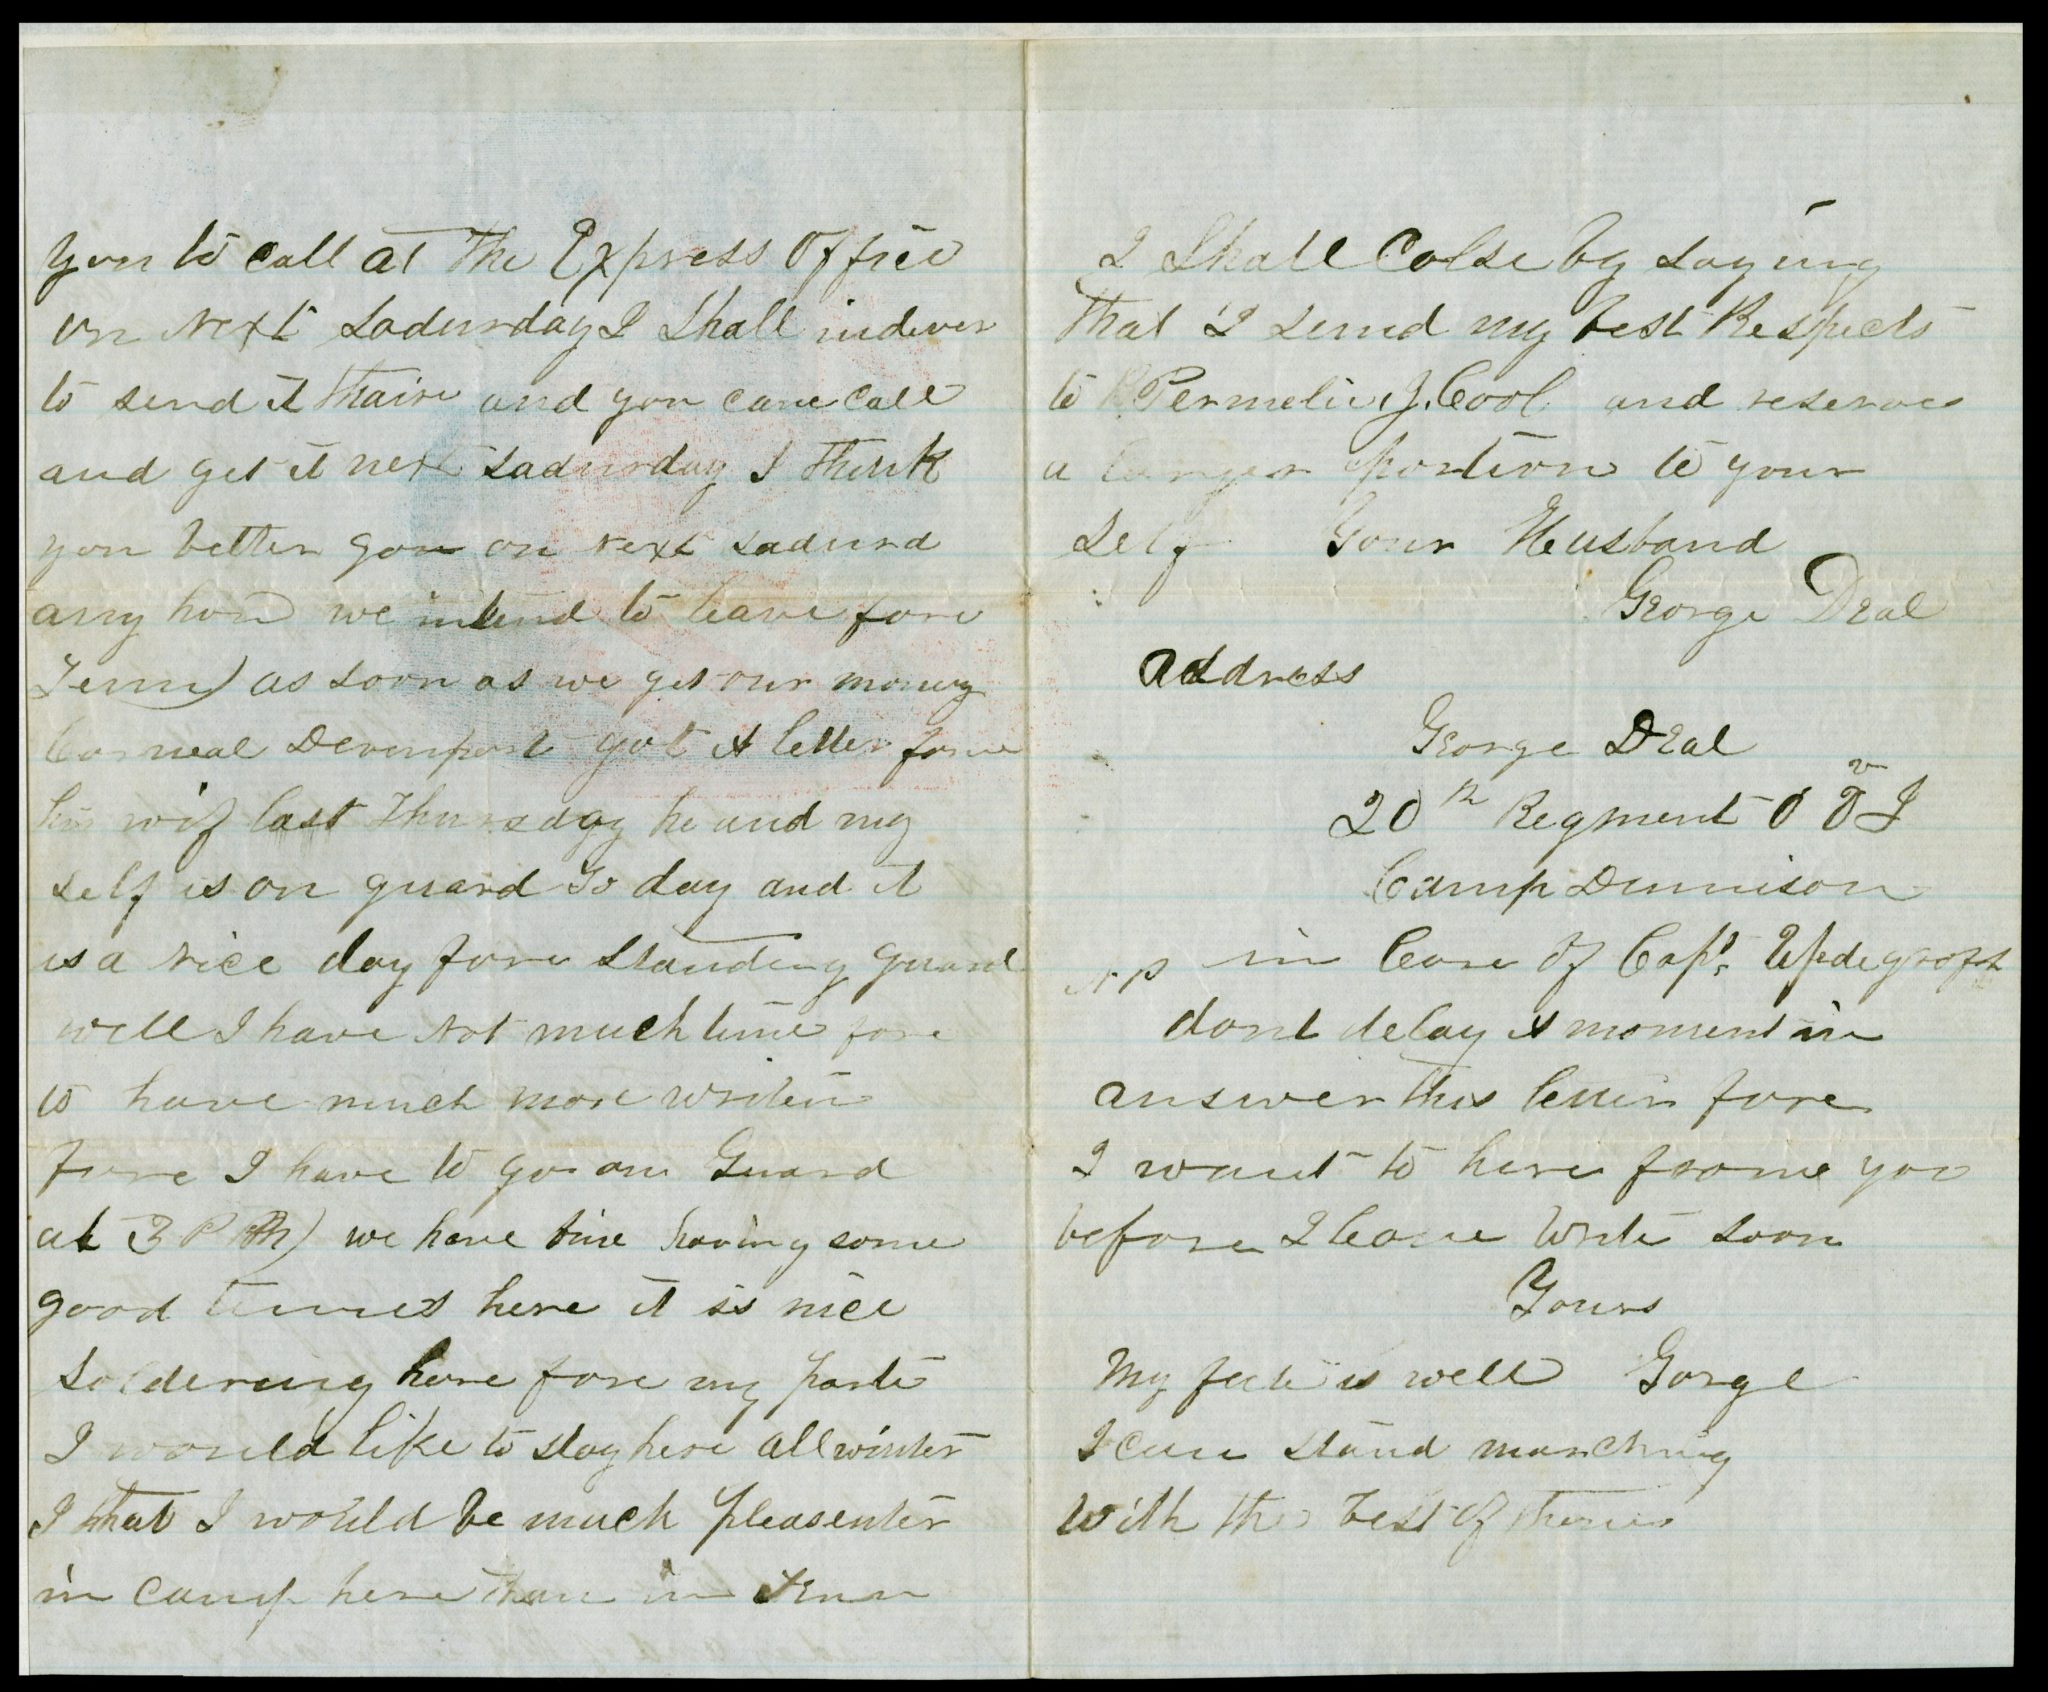 you to call at the Express Office
on Next Sadurday I Shall indever
to send it thaire and you cane call
and get it next Sadurday I think
you better gow on Next Sadurd
any how we intend to leave fore
Tenn as soon as we get our money
Corneal Devenport got A letter frome
his wif last Thursdqy he and my
self is on guard To day and it
is a Nice day fore Standing guard
well I have Not much time fore
to have much more writen
fore I have to go on Guard
at 3 P M we have bine having some
good times here it is nice
Soldering here fore my parte
I would like to stay here all winter
I that I would be much pleasenter
in camp here than in tenn
I Shall Colse by saying
that I send my best Respects
to Permelie, J. Cool and reserve
a larger portion to your
Self Your Husband
George Deal
Address
George Deal
20th Regment O V I
Camp Dennison
in Care of Capt Updegroft
N P
dont delay A moment in
answer this letter fore
I want to here frome you
before I leave Write soon
Yours
My feete is well Gorge
I can stand marching
with the best of theme